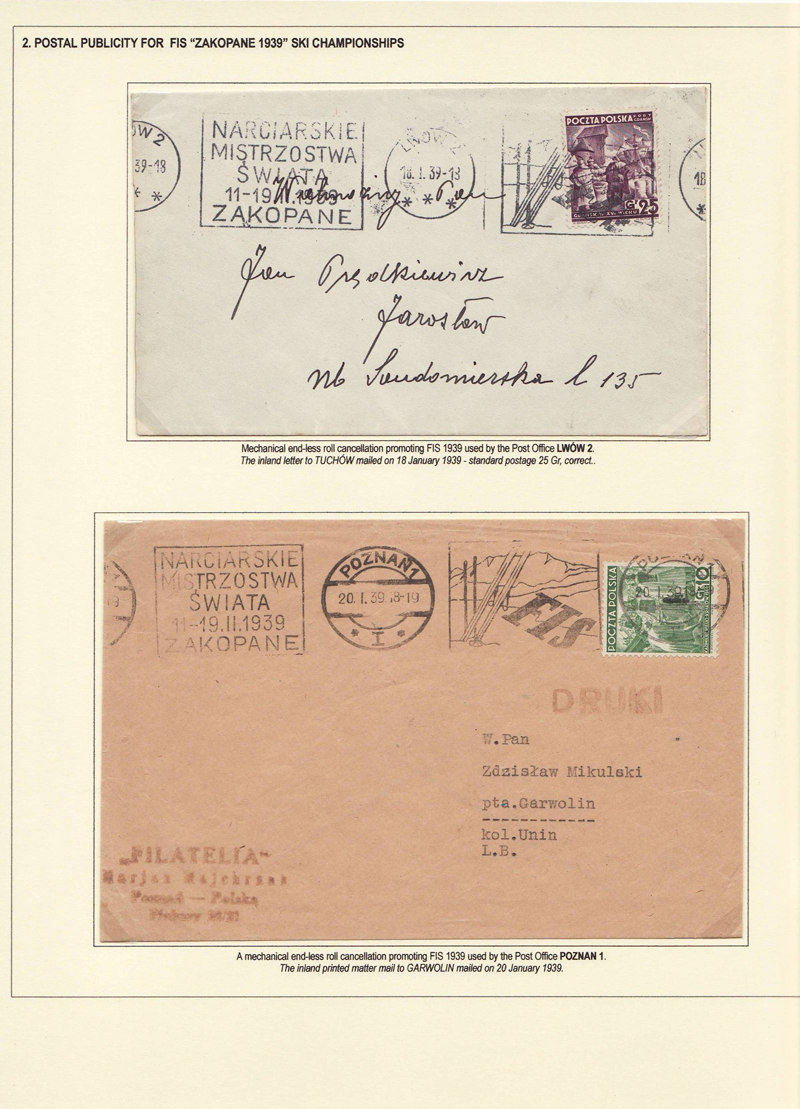 2. POSTAL PUBLICITY FOR FIS “ZAKOPANE 1939” SKI CHAMPIONSHIPS
LWÓW 2
39-18
NARCIARSKIE
MISTRZOSTWA
ŚWIATA
11-19.II.1939
ZAKOPANE
LWÓW 2
18.I.39-18
POCZTA POLSKA
GR 25
18
Wielmożny Pan
Jan Prędkiewicz
Jarosław
Nb Sandomierska l 135
Mechanical end-less roll cancellation promoting FIS 1939 used by the Post Office LWÓW 2.
The inland letter to TUCHÓW mailed on 18 January 1939 - standard postage 25 Gr, correct..
NARCIARSKIE
MISTRZOSTWA
ŚWIATA
11-19.II.1939
ZAKOPANE
POZNAŃ 1
20.I.39.18-19
I
FIS
POCZTA POLSKA
GR 10
POZNAŃ 1
DRUKI
W.Pan
Zdzisław Mikulski
pta.Garwolin
kol.Unin
L.B.
„FILATELIA”
Marjan Majchrzak
Poznań — Polska
Piekary
A mechanical end-less roll cancellation promoting FIS 1939 used by the Post Office POZNAN 1.
The inland printed matter mail to GARWOLIN mailed on 20 January 1939.